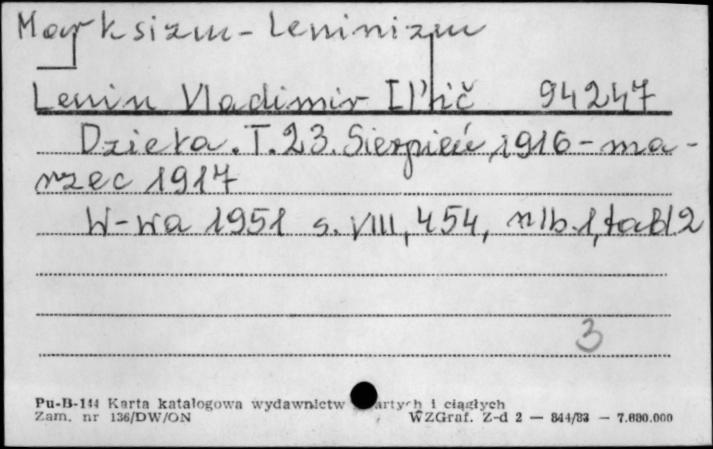 Marksizm-Leninizm
Lenin Vladimir Il'ič 94247
Dzieła. T.23. Sierpień 1916-ma-
rzec 1917
W-wa 1951 s. VIII, 454, nlb.1, tabl 2
3
Pu-B-144 Karta katalogowa wydawnictw artych i ciągłych
Zam. nr 136/DW/ON WZGraf. Z-d 2 — 844/83 — 7.680.000